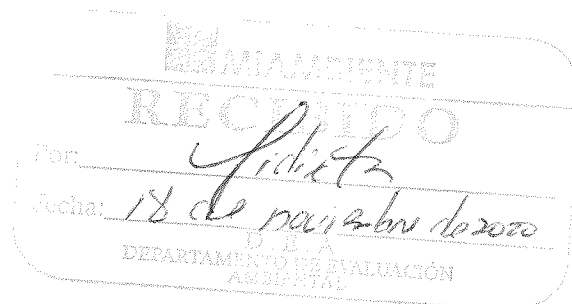 MIAMBIENTE
RECIBIDO
Por:
Fecha: 18 de noviembre de 2020
DEPARTAMENTO DE EVALUACIÓN
AMBIENTAL